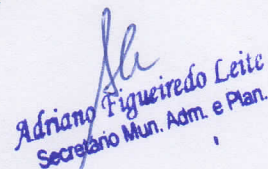 Adriano Figueiredo Leite
Secretário Mun. Adm. e Plan.